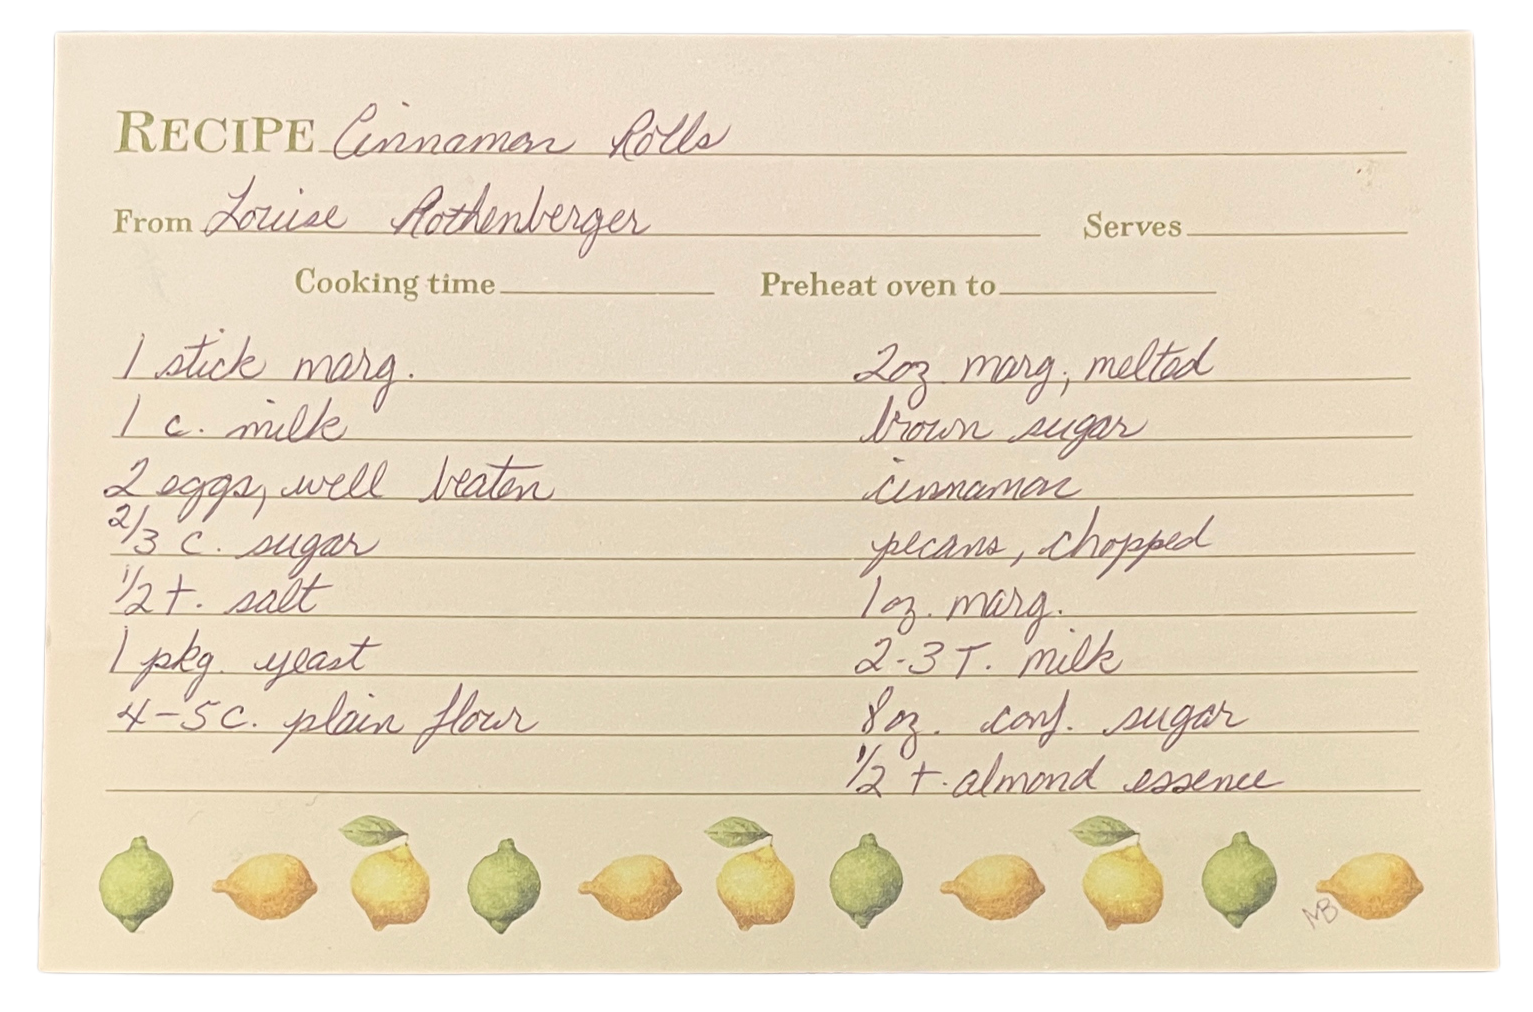 RECIPE Cinnamon Rolls
From Louise Rothenberger Serves
Cooking time Preheat oven to
1 stick marg.
1 c. milk
2 eggs, well beaten
2/3 c. sugar
1/2 t. salt
1 pkg. yeast
4-5 c. plain flour
2 oz marg, melted
brown sugar
cinnamon
pecans, chopped
1 oz. marg.
2-3 T. milk
8 oz. conf. sugar
1/2 t. almond essence
MB